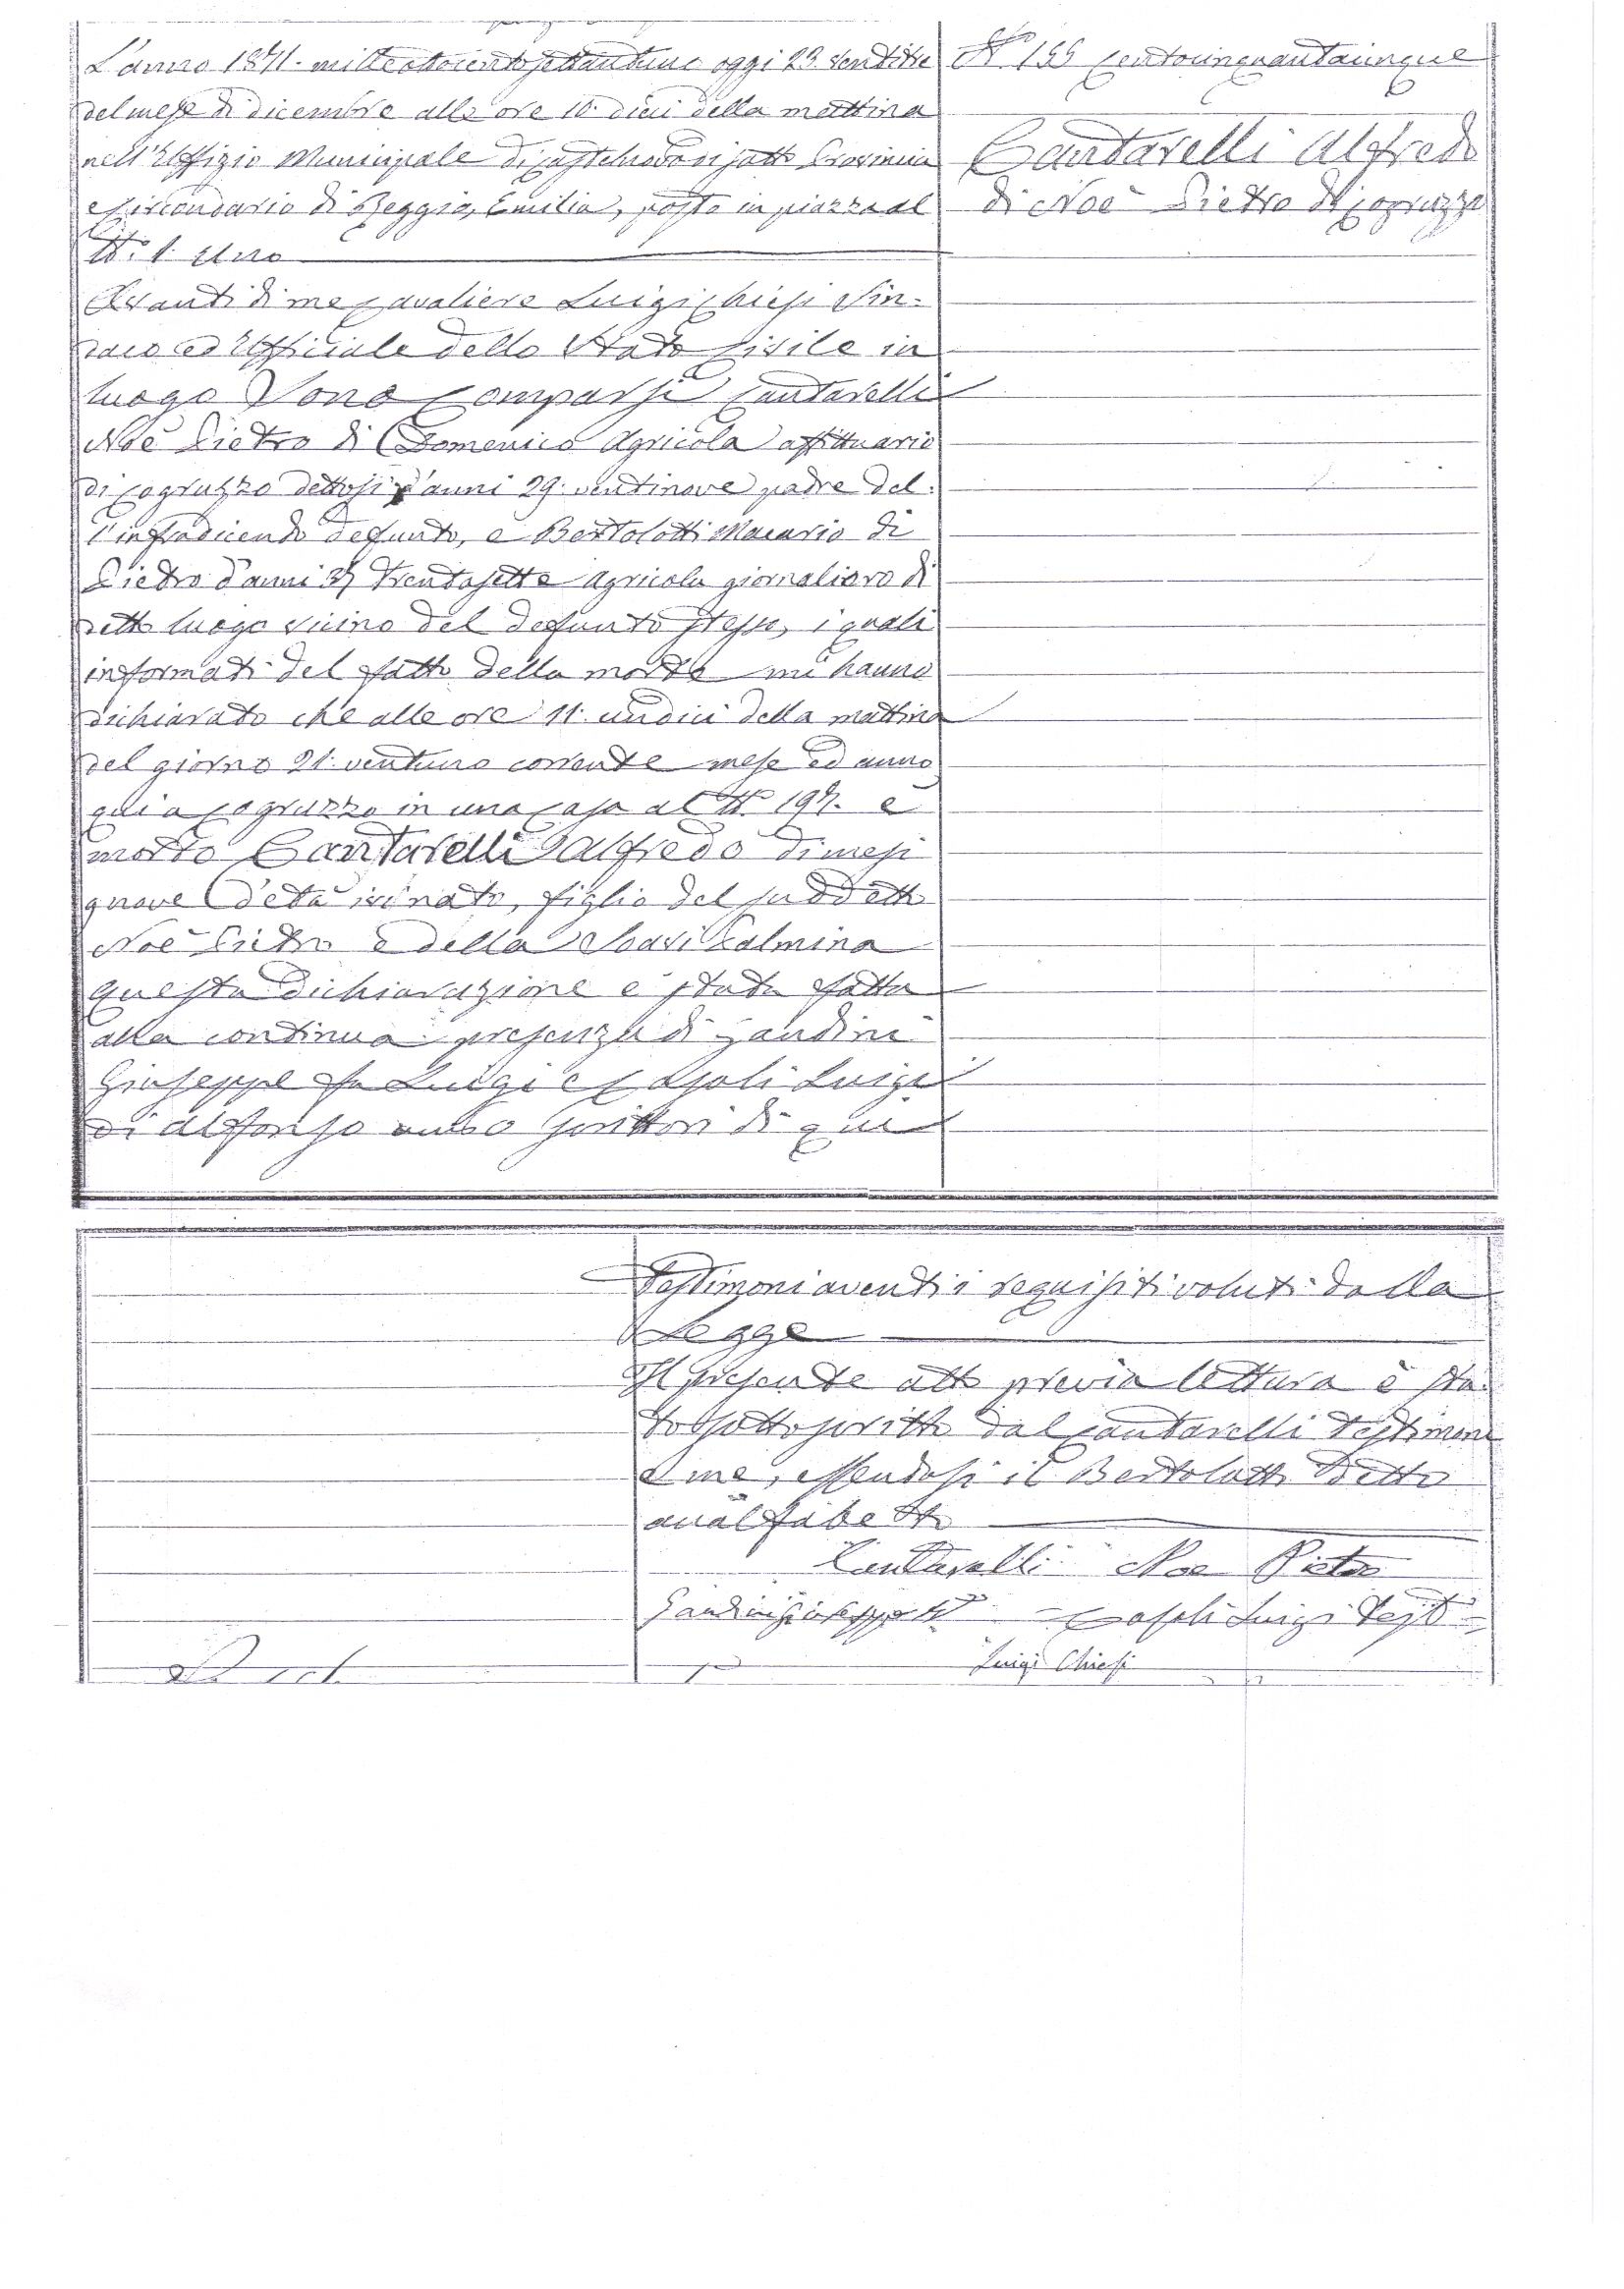 L'anno 1871. milleottocentosettantuno oggi 23. ventitre
del mese di dicembre alle ore 10. dieci della mattina
nell'Uffizio Municipale di Castelnovo di sotto Provincia
e Circondario di Reggio, Emilia, posto in piazza al
N.° 1. Uno
Avanti di me Cavaliere Luigi Chiesi Sin-
daco ed Ufficiale dello Stato Civile in
luogo Sono Comparsi Cantarelli
Noè Pietro di Domenico Agricola affittuario
di Cogruzzo dettosi d'anni 29. ventinove padre del-
l'infradicendo defunto, e Bertolotti Macario di
Pietro d'anni 37 trentasette Agricola giornaliero di
detto luogo vicino del defunto stesso, i quali
informati del fatto della morte mi hanno
dichiarato che alle ore 11. undici della mattina
del giorno 21. ventuno corrente mese ed anno
qui a Cogruzzo in una casa al N° 197. è
morto Cantarelli Alfredo di mesi
nove d'età ivi nato, figlio del suddetto
Noè Pietro e della Soavi Palmina
Questa dichiarazione è stata fatta
alla continua presenza di Gandini
Giuseppe fu Luigi e Casoli Luigi
di Alfonso ambo scrittori di qui
N° 155 Centocinquantacinque
Cantarelli Alfredo
di Noè Pietro di Cogruzzo
Testimoni aventi i requisiti voluti dalla
Legge
Il presente atto previa lettura è sta-
to sottoscritto dal Cantarelli Testimoni
e me, essendosi il Bertolotti detto
analfabetto
Cantarelli Noe Pietro
Gandini Giuseppe Casoli Luigi Test
Luigi Chiesi